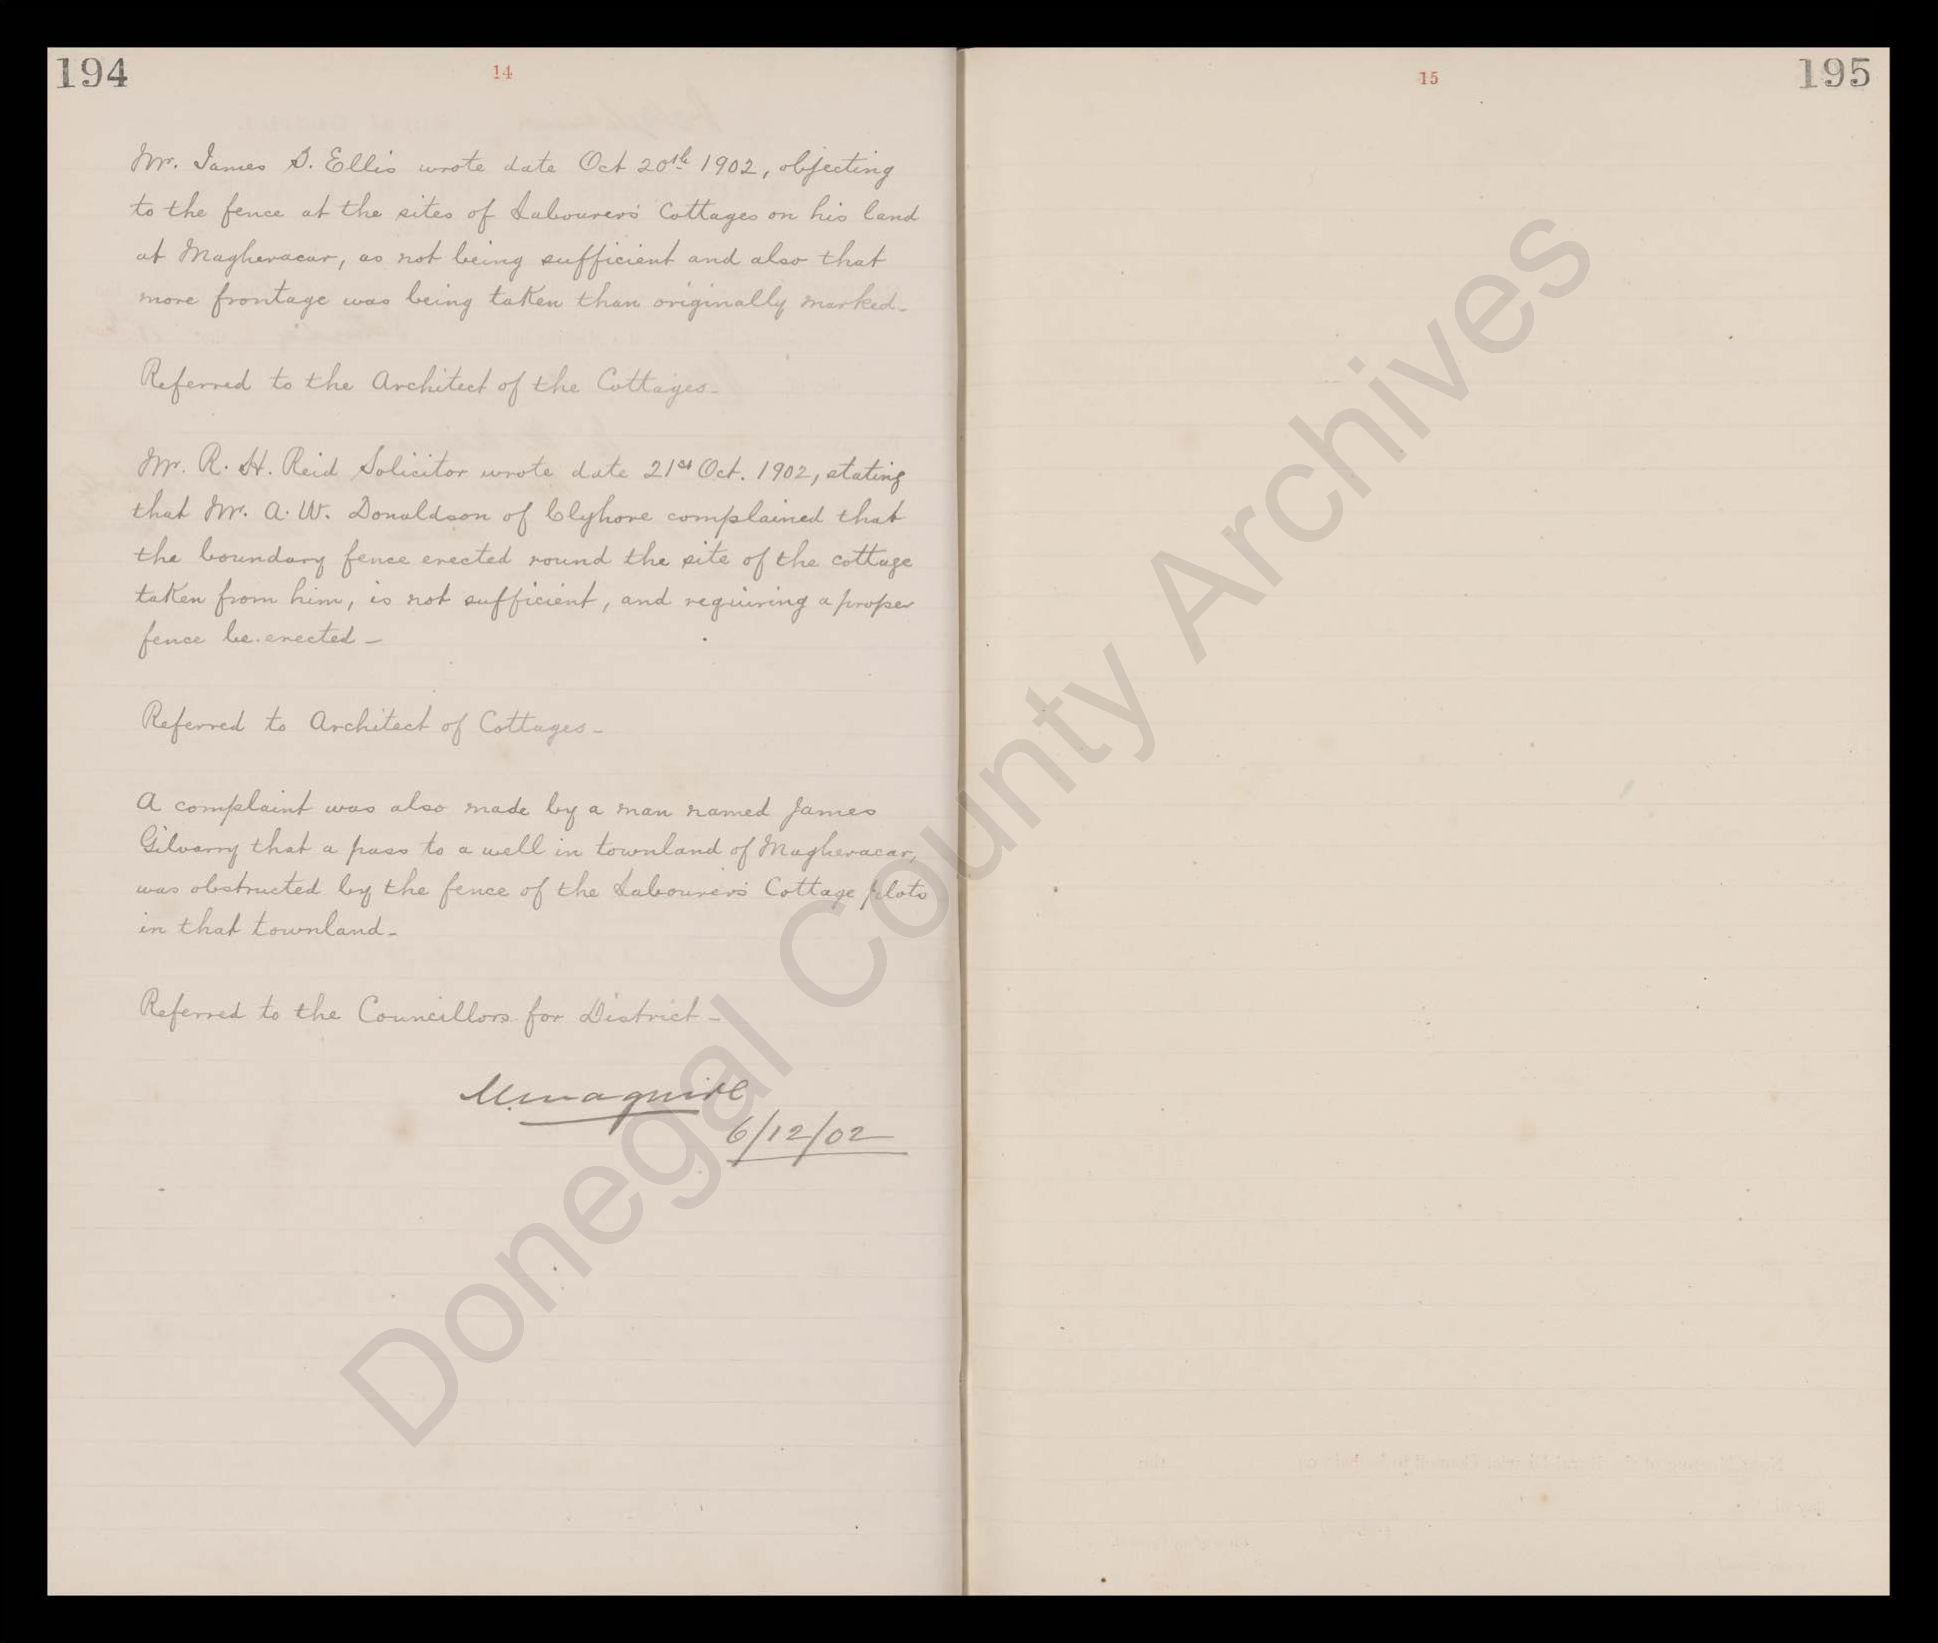 194
14
Mr. James S. Ellis wrote date Oct 20th 1902, objecting
to the fence at the sites of Labourers' Cottages on his land
at Magheracar, as not being sufficient and also that
more frontage was being taken than originally marked.
Referred to the Architect of the Cottages.
Mr. R. H. Reid Solicitor wrote date 21st Oct. 1902, stating
that Mr. A. W. Donaldson of Clyhore complained that
the boundary fence erected round the site of the cottage
taken from him, is not sufficient, and requiring a proper
fence be erected —
Referred to Architect of Cottages —
A complaint was also made by a man named James
Gilvarry that a pass to a well in townland of Magheracar,
was obstructed by the fence of the Labourers' Cottage plots
in that townland —
Referred to the Councillors for District —
M. Maguire
6/12/02
15
195
Donegal County Archives